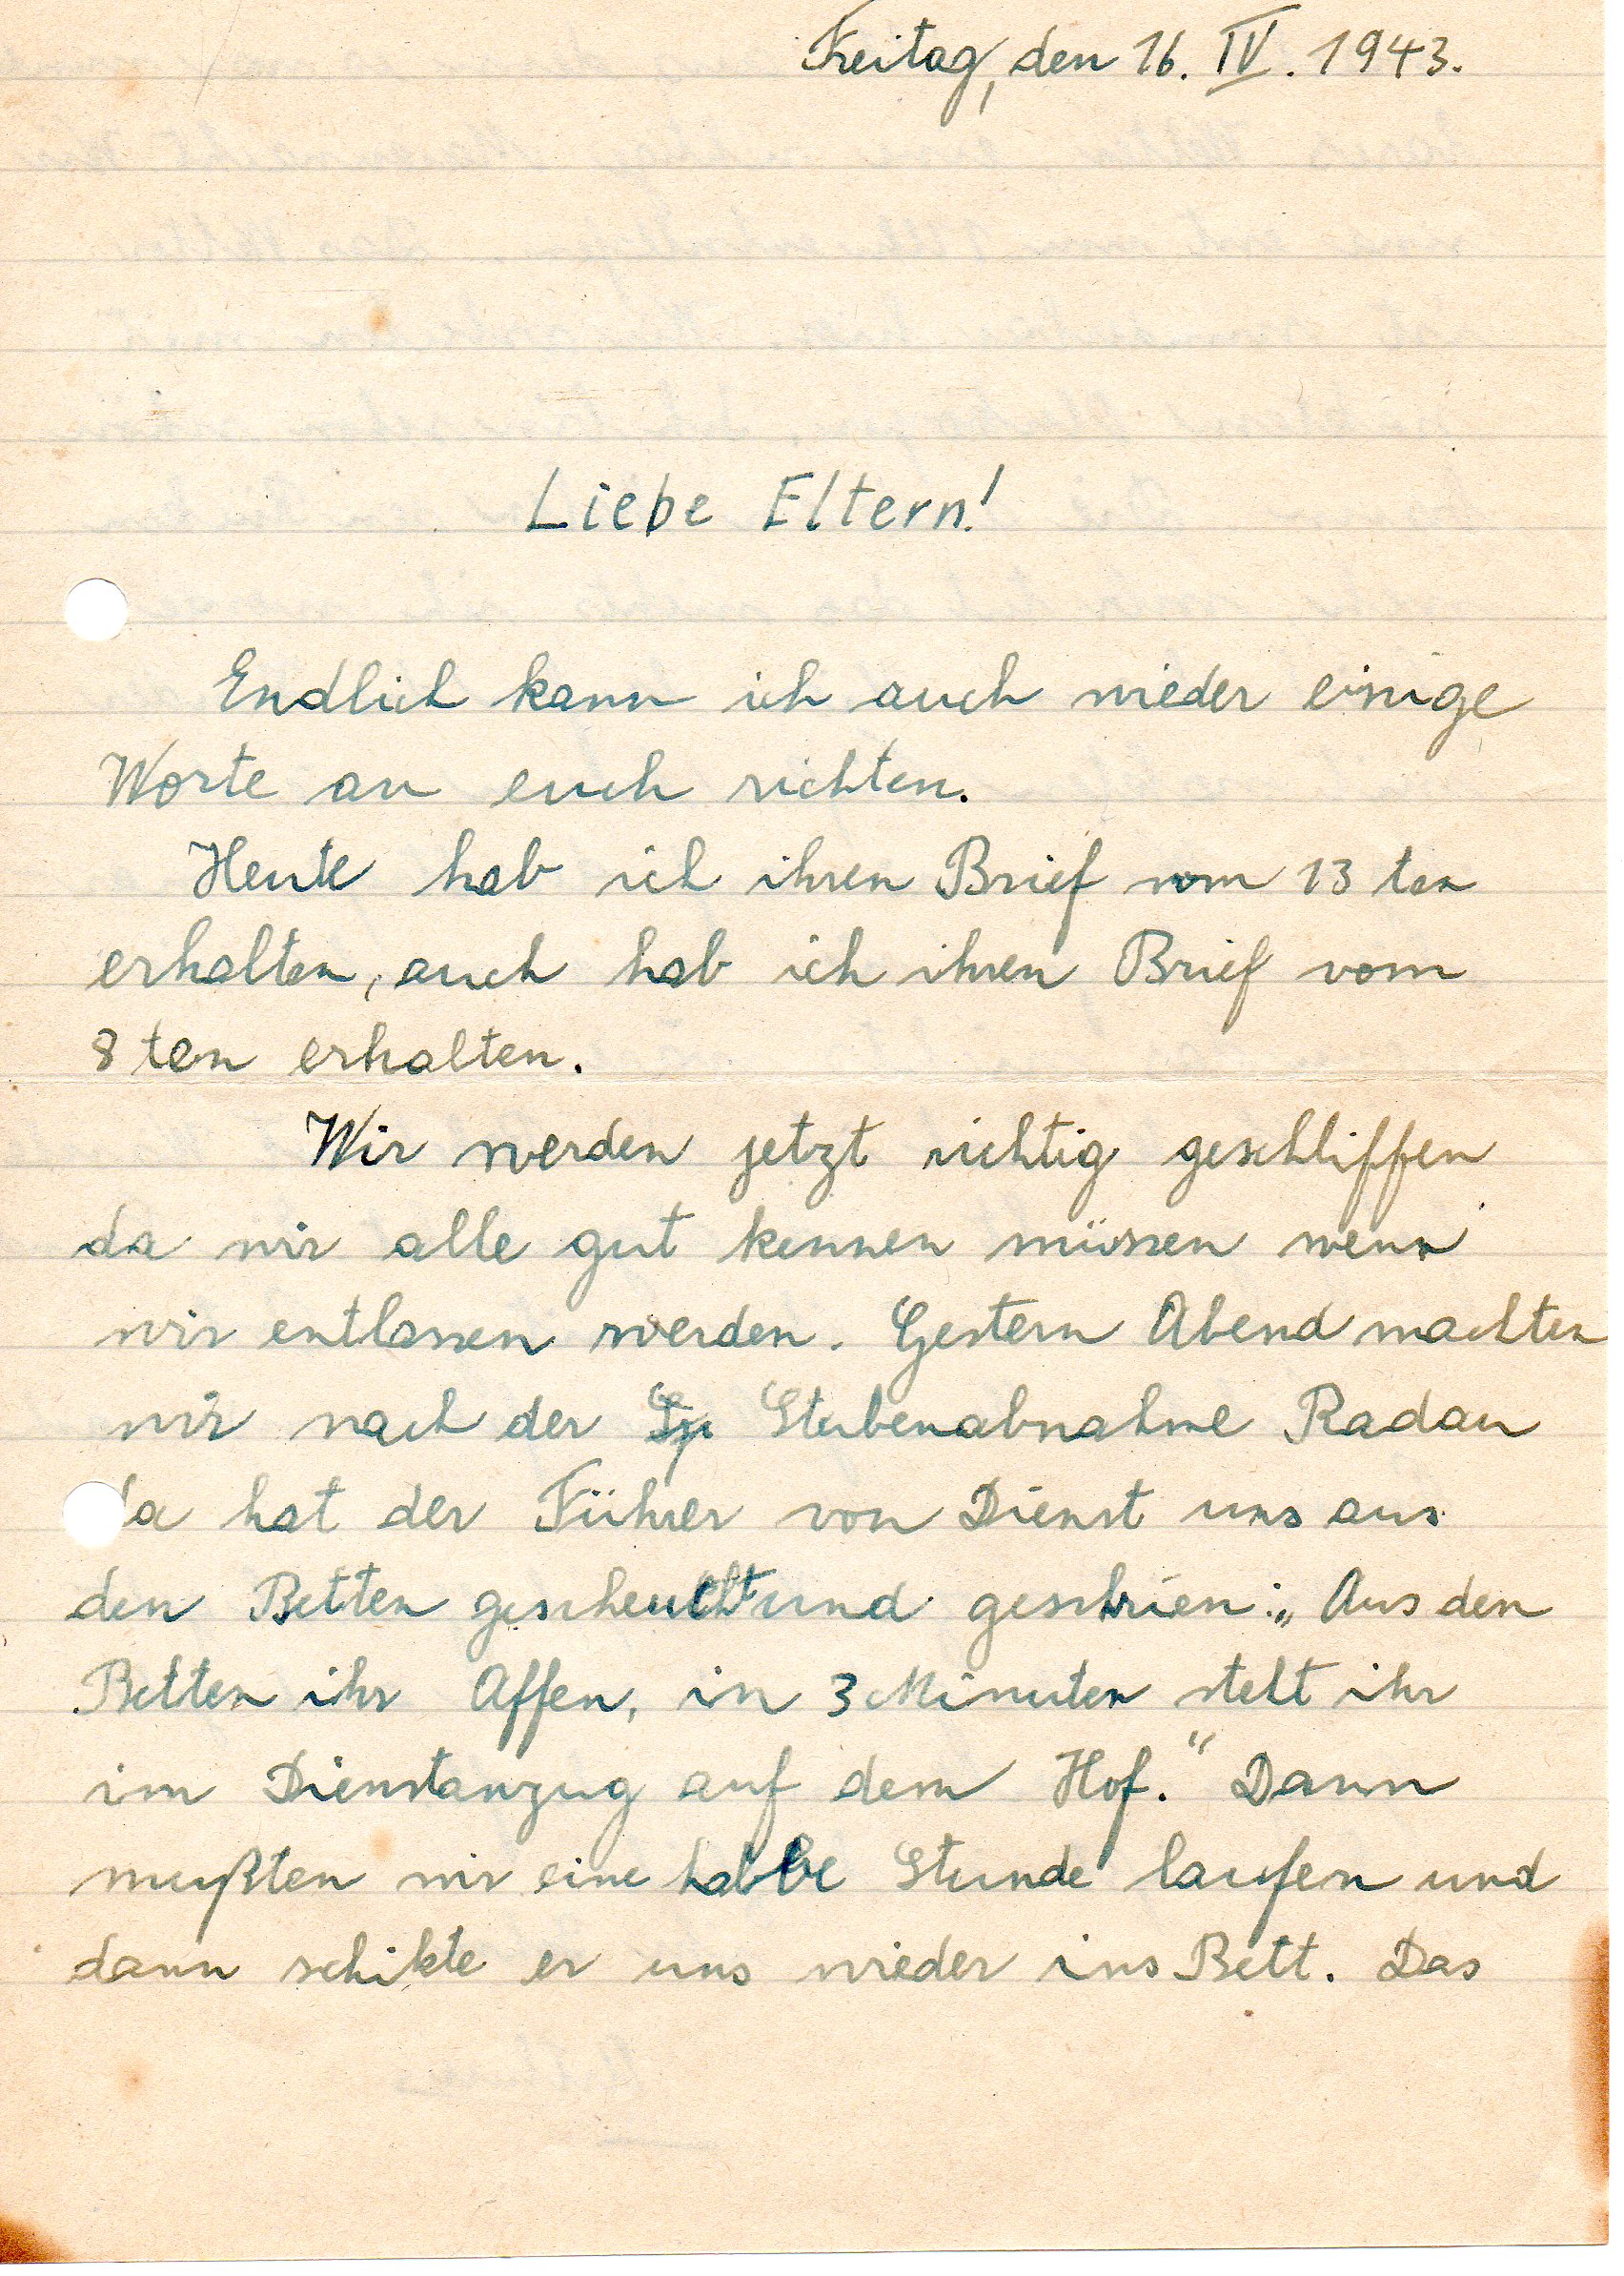 Freitag, den 16. IV. 1943.
Liebe Eltern!
Endlich kann ich auch wieder einige
Worte an euch richten.
Heute hab ich ihren Brief vom 13 ten
erhalten, auch hab ich ihren Brief vom
8 ten erhalten.
Wir werden jetzt richtig geschliffen
da wir alle gut kennen müssen wenn
wir entlassen werden. Gestern Abend machten
wir nach der Stubenabnahme Radau
da hat der Führer von Dienst uns aus
den Betten gescheucht und geschrien: „Aus den
Betten ihr Affen, in 3 Minuten steht ihr
im Dienstanzug auf dem Hof.“ Dann
mußten wir eine halbe Stunde laufen und
dann schikte er uns wieder ins Bett. Das